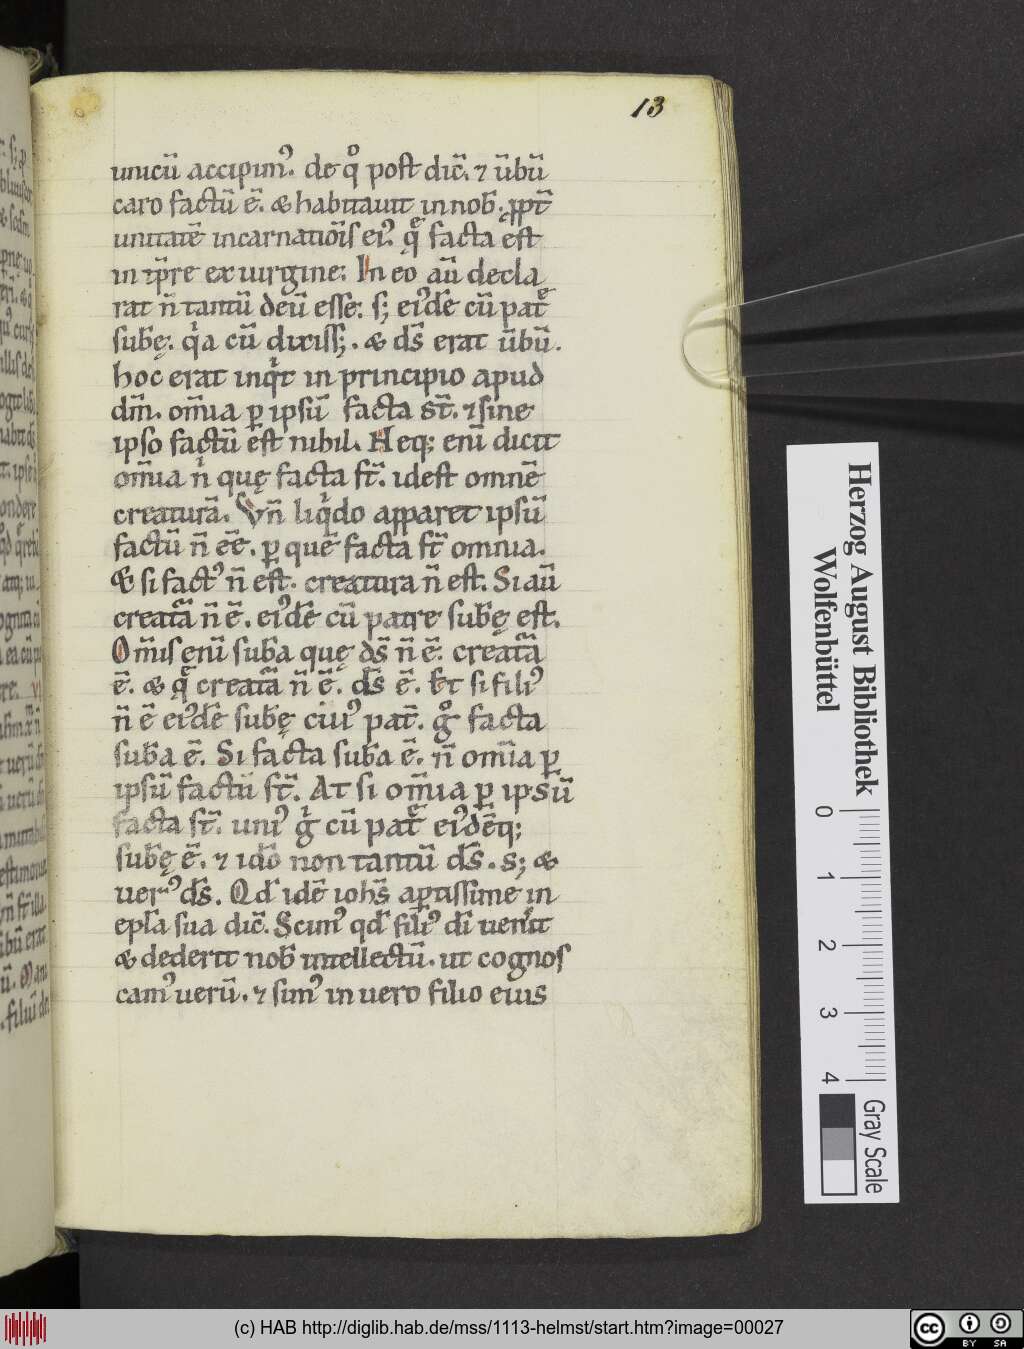 13
unicū accipim᷒. de qͦ post dic̄. ⁊ ūbū
caro factū ē. & habitauit in nob̄. ꝓpt̄
unitatē incarnatiōis ei᷒. q̄ facta est
in tp̄re ex uirgine: In eo aū decla
rat n̄ tantū deū esse: s; ei᷒dē cū pat͛
sub̄ę. qͥa cū dixiss;. & ds̄ erat ūbū.
hoc erat inqͥt in principio apud
dm̄. om̄ia ꝑ ipsū facta st̄. ⁊ sine
ipso factū est nihil. Neq; enī dicit
om̄ia nͥ quę facta st̄. id est omnē
creaturā. Vn̄ liqͥdo apparet ipsū
factū n̄ eē. ꝑ quē facta st̄ omnia.
& si fact᷒ n̄ est. creatura n̄ est. Si aū
creat̄a n̄ ē. ei᷒dē cū patre sub̄ę est.
Om̄is enī sub̄a quę ds̄ n̄ ē. creat̄a
ē. & q̄ creat̄a n̄ ē. ds̄ ē. Et si fili᷒
n̄ ē ei᷒dē sub̄ę cui᷒ pat̄. gͦ facta
sub̄a ē. Si facta sub̄a ē. n̄ om̄ia ꝑ
ipsū factū st̄. At si om̄ia ꝑ ipsū
facta st̄. uni᷒ gͥ cū pat͛ ei᷒dēq;
sub̄ę ē. ⁊ idō non tantū ds̄. s; &
uer᷒ ds̄. Qd̄ idē ioh̄s aꝑtissime in
epl̄a sua dic̄. Scim᷒ qd̄ fili᷒ dī uenit
& dederit nob̄ intellectū. ut cognos
cam᷒ uerū. ⁊ sim᷒ in uero filio eius
Herzog August Bibliothek
Wolfenbüttel
0 1 2 3 4
Gray Scale
(c) HAB http://diglib.hab.de/mss/1113-helmst/start.htm?image=00027
cc BY SA